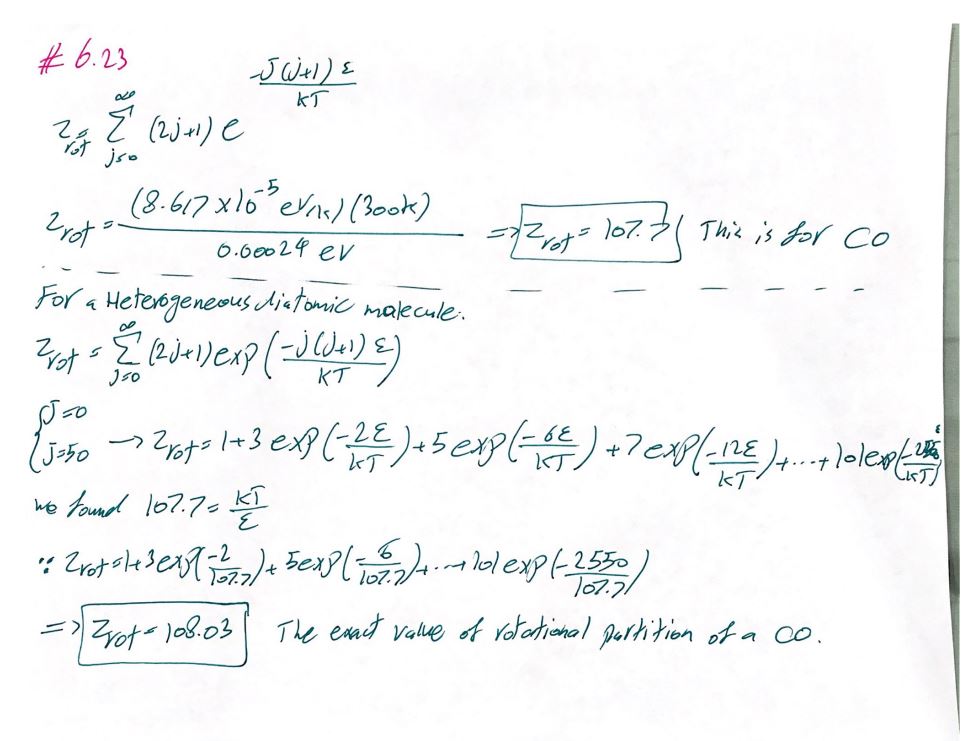 # 6.23
Z_rot = ∑_{j=0}^{∞} (2j+1) e^{-J(j+1)ε/KT}
Z_rot = (8.617 x 10^{-5} eV/k)(300k) / 0.00024 ev => Z_rot = 107.7 This is for CO
For a Heterogeneous diatomic molecule.
Z_rot = ∑_{J=0}^{∞} (2j+1) exp(-j(J+1)ε/KT)
{J=0
{j=50 → Z_rot = 1+3 exp(-2ε/KT) + 5 exp(-6ε/KT) + 7 exp(-12ε/KT) + ... + 101 exp(
we found 107.7 = KT/ε
∵ Z_rot = 1+3 exp(-2/107.7) + 5 exp(-6/107.7) + ... + 101 exp(-2550/107.7)
=> Z_rot = 108.03 The exact value of rotational partition of a CO.